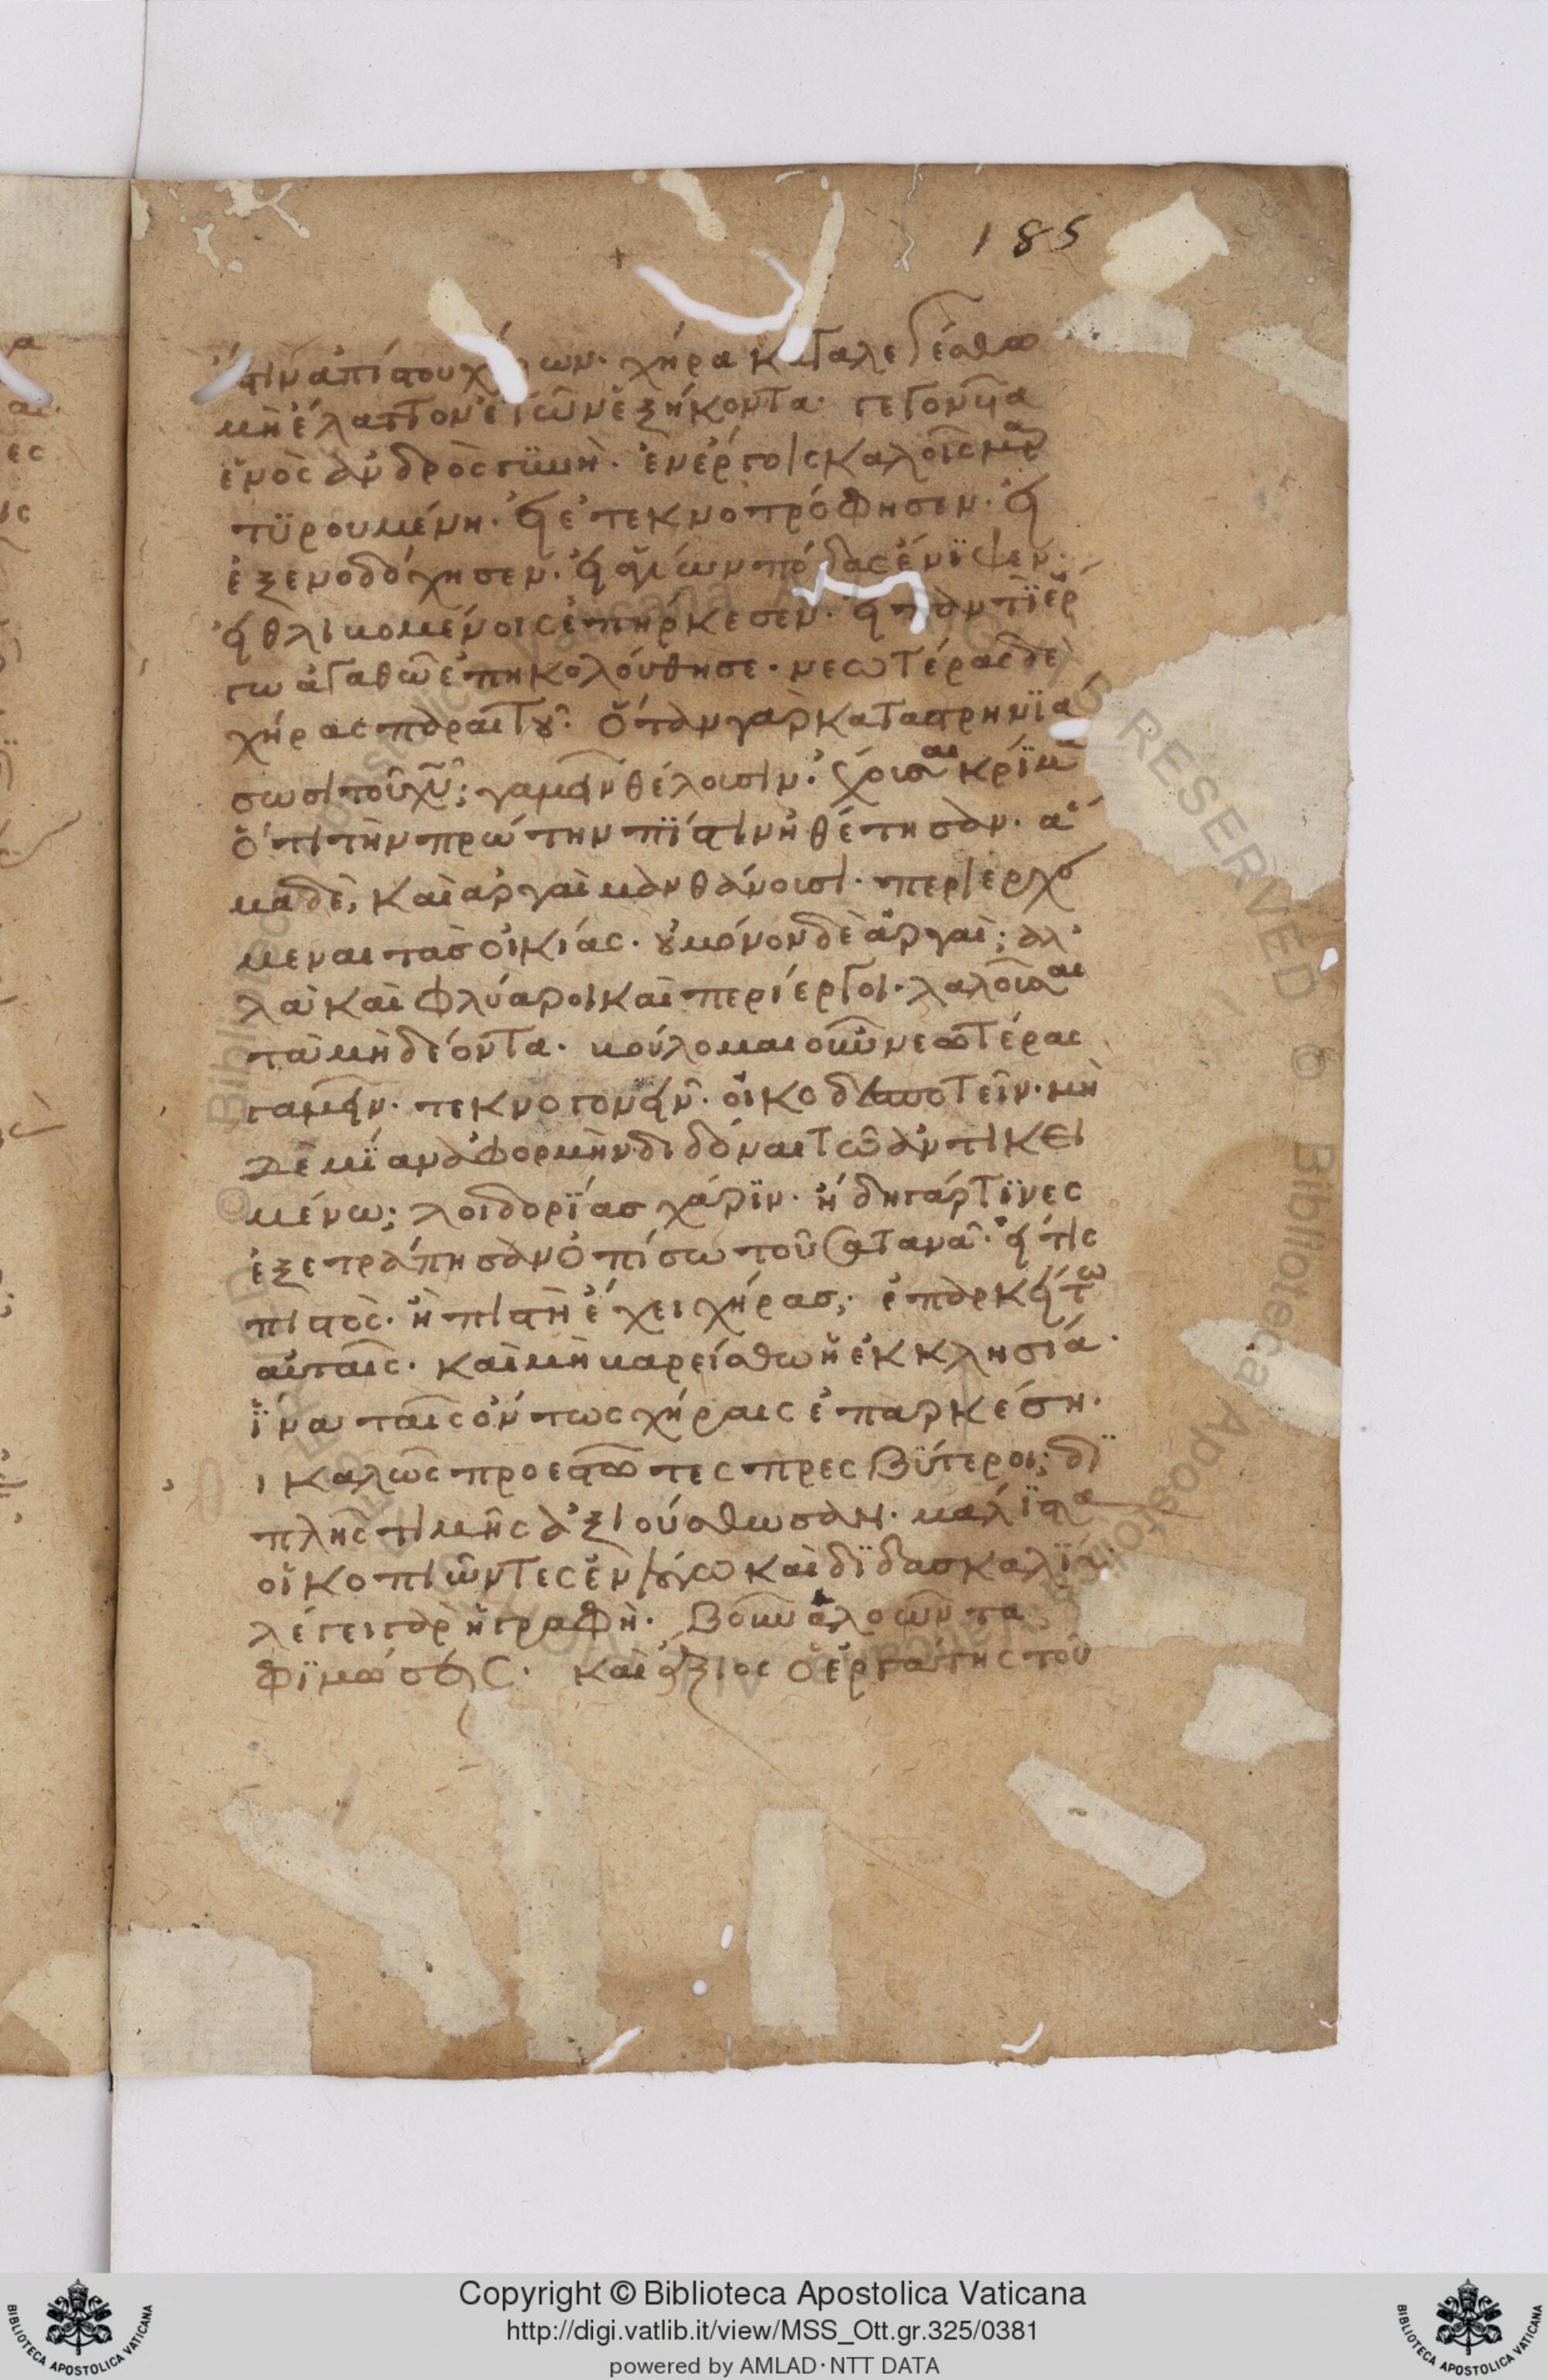 185
ἔστιν ἀπίστου χείρων. χήρα καταλεγέσθω
μὴ ἔλαττον ἐτῶν ἑξήκοντα. γεγονυῖα
ἑνὸς ἀνδρὸς γϋνὴ. ἐν ἔργοις καλοῖς μαρ
τϋρουμένη. εἰ ἐτεκνοτρόφησεν. εἰ
ἐξενοδόχησεν. εἰ ἁγίων πόδας ἔνϊψεν.
εἰ θλιβομένοις ἐπήρκεσεν. εἰ παντϊ ἔρ
γω ἀγαθῶ ἐπηκολούθησε. νεωτέρας δὲ
χήρας παραιτοῦ. ὅταν γὰρ καταστρηνϊά
σωσι τοῦ χυ; γαμεῖν θέλουσιν. ἔχουσαι κρίμα
ὅτι τὴν πρώτην πίστιν ἠθέτησαν. ἅ
μα δὲ, καὶ ἀργαὶ μανθάνουσι. περιερχό
μεναι τὰσ οἰκίας. οὐ μόνον δὲ ἀργαὶ; ἀλ
λὰ καὶ φλύαροι καὶ περίεργοι. λαλοῦσαι
τὰ μὴ δέοντα. βούλομαι οὖν νεωτέρας
γαμεῖν. τεκνογονεῖν. οἰκοδεσποτεῖν. μὴ
δὲ μΐαν ἀφορμὴν διδόναι τῶ ἀντικει
μένω; λοιδορΐασ χάρϊν. ἤδη γάρ τϊνες
ἐξετράπησαν ὀπίσω τοῦ σατανᾶ. εἴ τις
πιστὸς. ἢ πιστὴ ἔχει χήρασ; ἐπαρκείτω
αὐταῖς. καὶ μὴ βαρείσθω ἡ ἐκκλησία.
ἵνα ταῖς ὄντως χήραις ἐπαρκέση.
ι καλῶς προεστῶτες πρεσβΰτεροι; δϊ
πλῆς τιμῆς ἀξιούσθωσαν. μάλϊστα
οἱ κοπιῶντες ἐν λόγω καὶ δϊδασκαλία.
λέγει γὰρ ἡ γραφὴ. βοῦν ἀλοῶντα
φϊμώσεις. καὶ ἄξιος ὁ ἐργάτης τοῦ
Copyright © Biblioteca Apostolica Vaticana
http://digi.vatlib.it/view/MSS_Ott.gr.325/0381
powered by AMLAD·NTT DATA